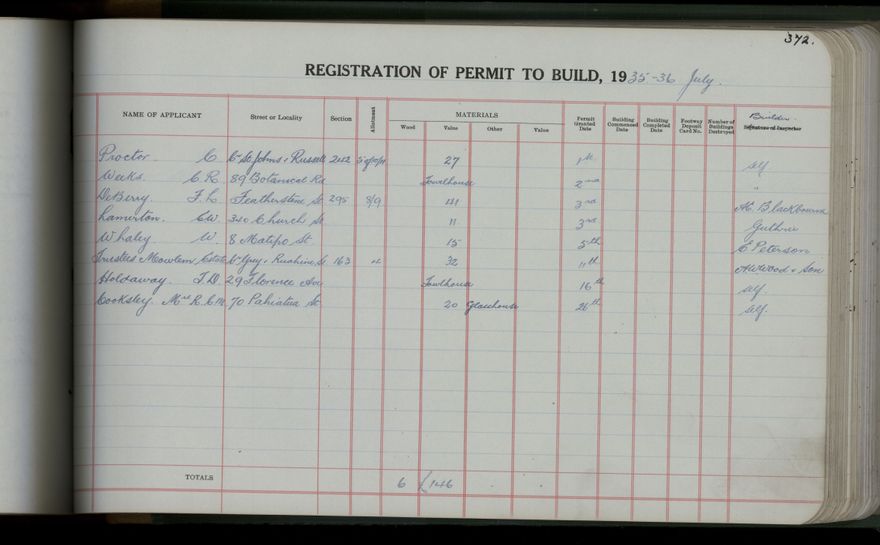 372.
REGISTRATION OF PERMIT TO BUILD, 1935-36 July.
NAME OF APPLICANT Street or Locality Section Allotment MATERIALS Wood Value Other Value Permit Granted Date Building Commenced Date Building Completed Date Footway Deposit Card No. Number of Buildings Destroyed Builder Signature of Inspector
Procter C. Cr St Johns & Russell 242 27 1st self
Weeks. C. R. 89 Botanical Rd Fowlhouse 2nd "
DeBerry. F. L. Featherstone St 295 8/9 41 3rd A. Blackbourn
Lamerton. C W. 340 Church St 11 3rd Guthrie
Whaley. W. 8 Matipo St. 15 5th E Peterson
Trustees Mowlem Estate Cr Guy & Ruahine St 163 32 11th A W Wood & Son
Holdaway. T. D. 29 Florence Ave Fowlhouse 16th self.
Cooksley. Mrs R. C. M. 70 Pahiatua St 20 Glasshouse 26th self.
TOTALS 6 146